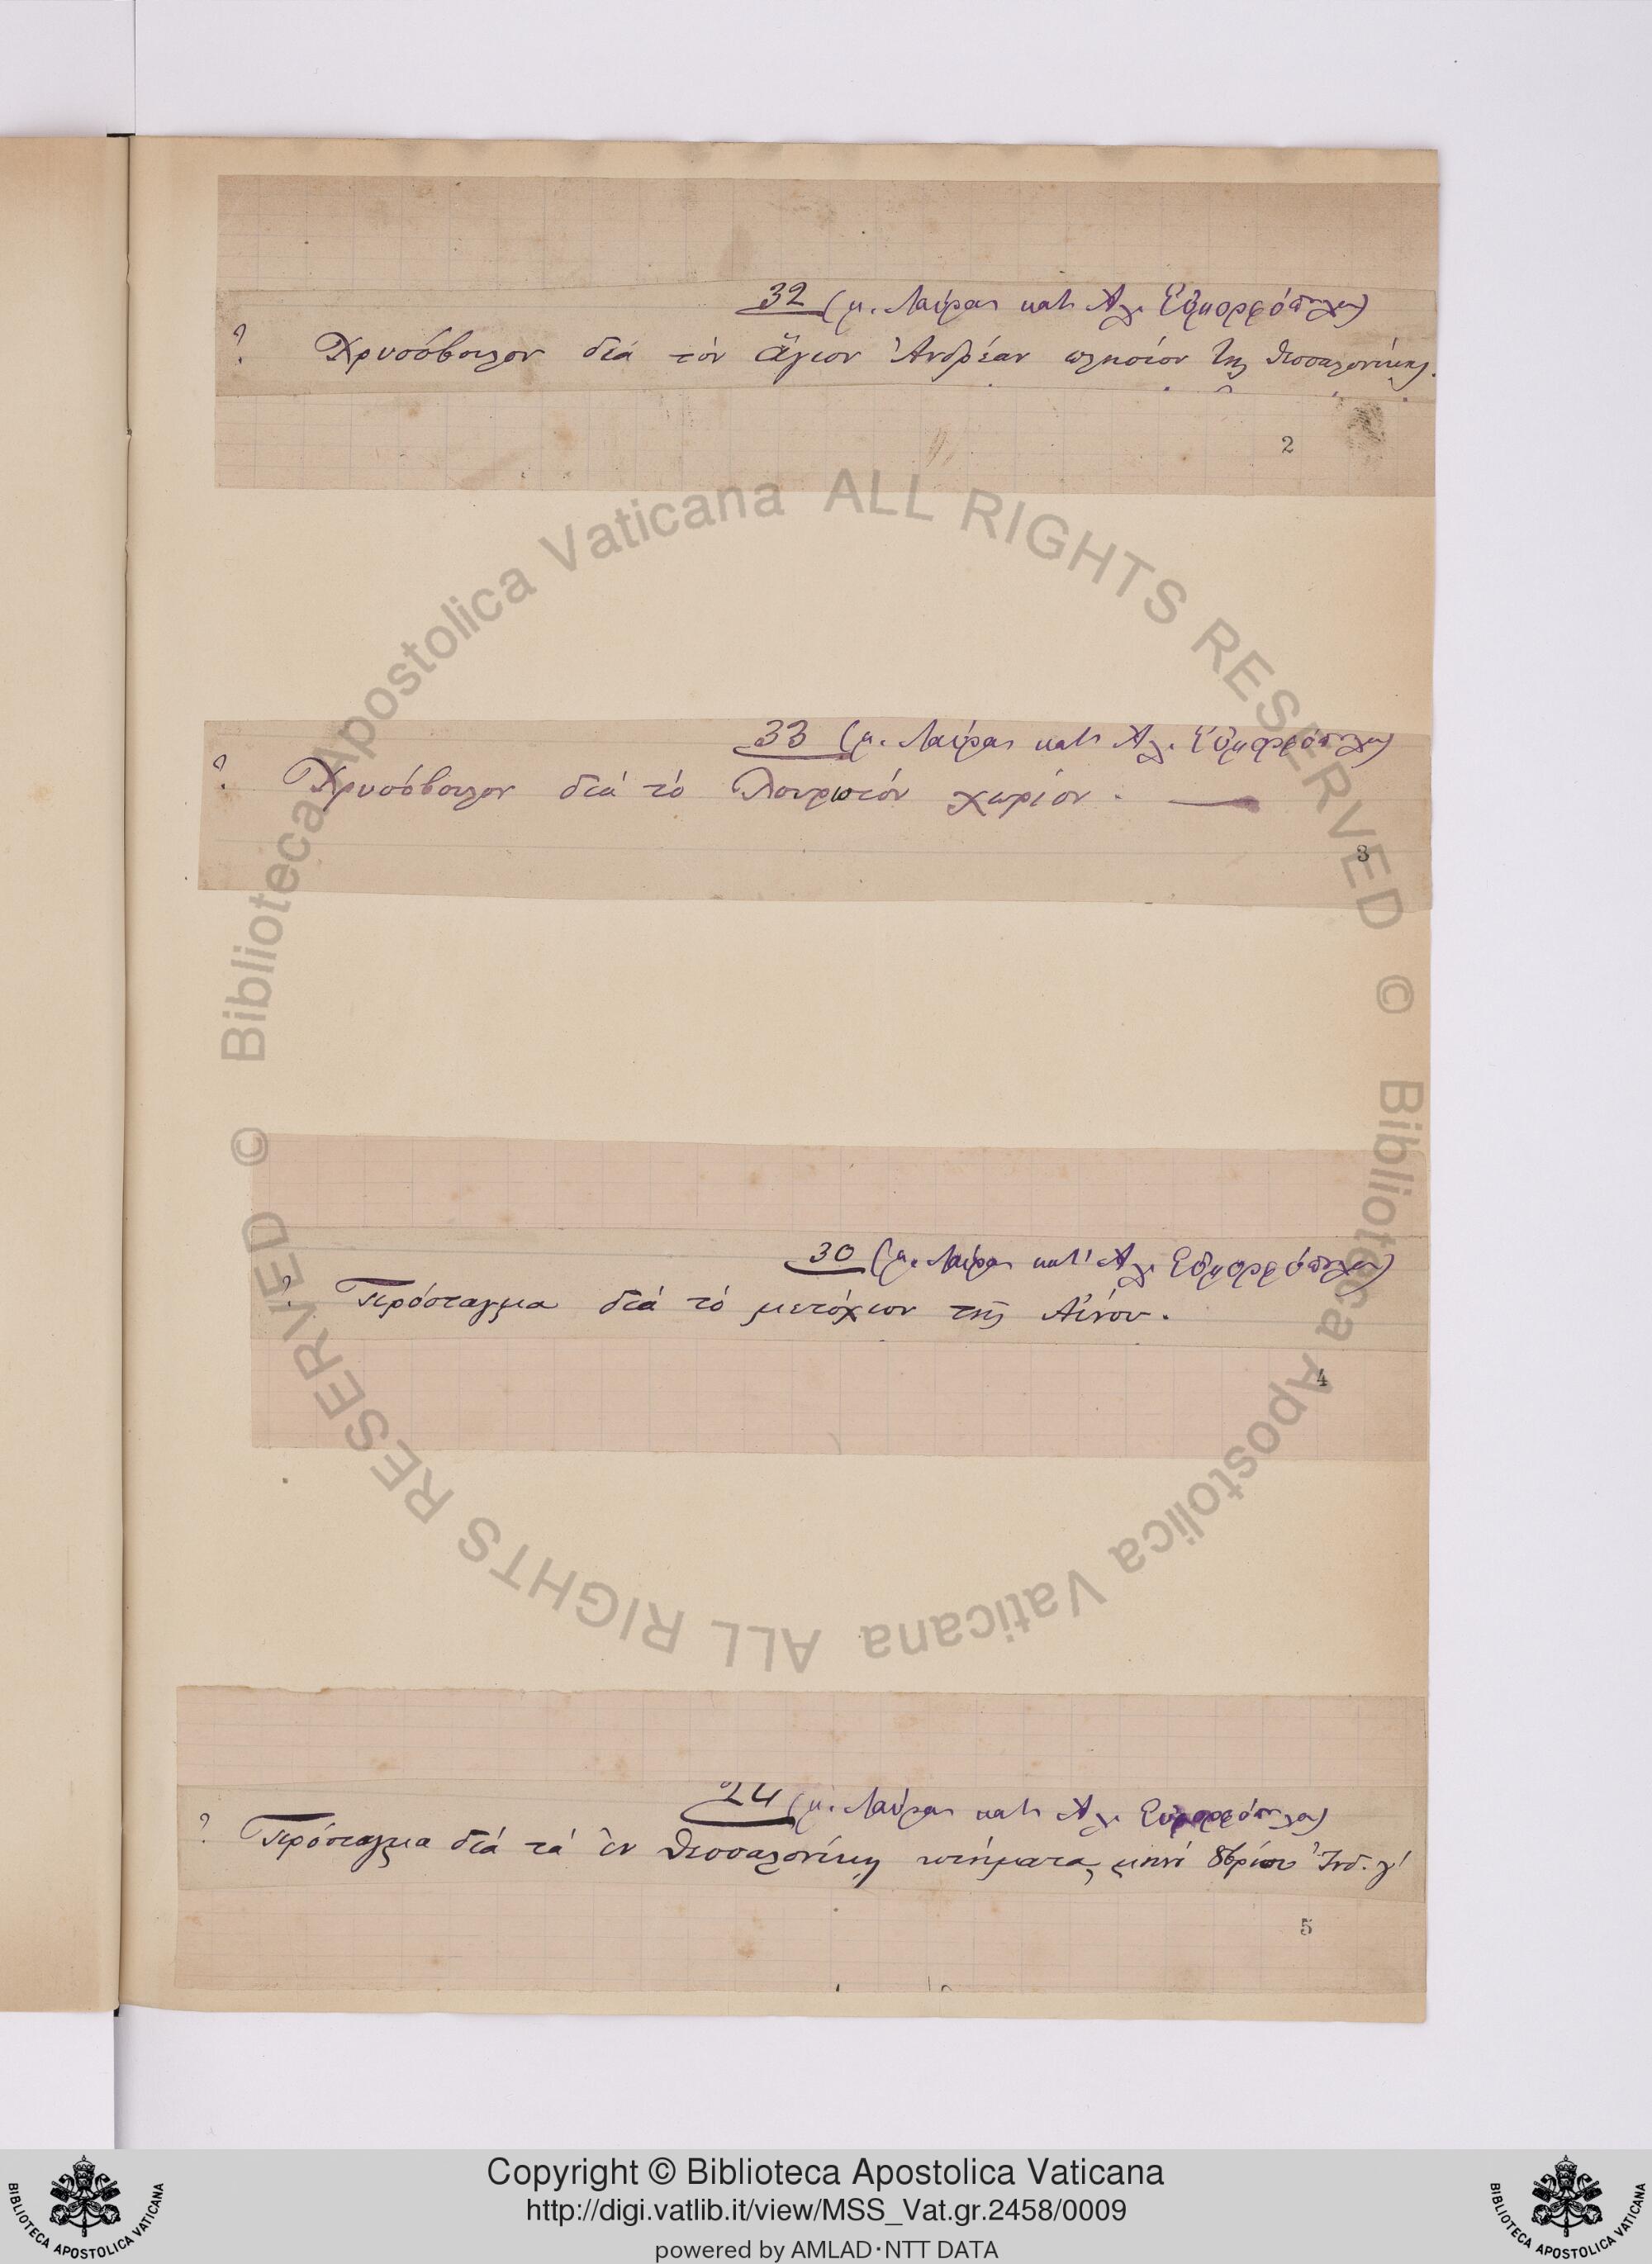 32 (μ. Λαύρας κατ' Ἀλ. Εὐμορφόπουλον)
? Χρυσόβουλον διά τόν ἅγιον Ἀνδρέαν πλησίον τῆς Θεσσαλονίκης.
2
33 (μ. Λαύρας κατ' Ἀλ. Εὐμορφόπουλον)
? Χρυσόβουλον διά τό χωρίον. —
3
30 (μ. Λαύρας κατ' Ἀλ. Εὐμορφόπουλον)
? Πρόσταγμα διά τό μετόχιον τῆς Αἴνου.
4
24 (μ. Λαύρας κατ' Ἀλ. Εὐμορφόπουλον)
? Πρόσταγμα διά τά ἐν Θεσσαλονίκῃ κτήματα, μηνί Ἰνδ. γ'
5
© Biblioteca Apostolica Vaticana ALL RIGHTS RESERVED
© Biblioteca Apostolica Vaticana ALL RIGHTS RESERVED
Copyright © Biblioteca Apostolica Vaticana
http://digi.vatlib.it/view/MSS_Vat.gr.2458/0009
powered by AMLAD·NTT DATA
BIBLIOTECA APOSTOLICA VATICANA
BIBLIOTECA APOSTOLICA VATICANA